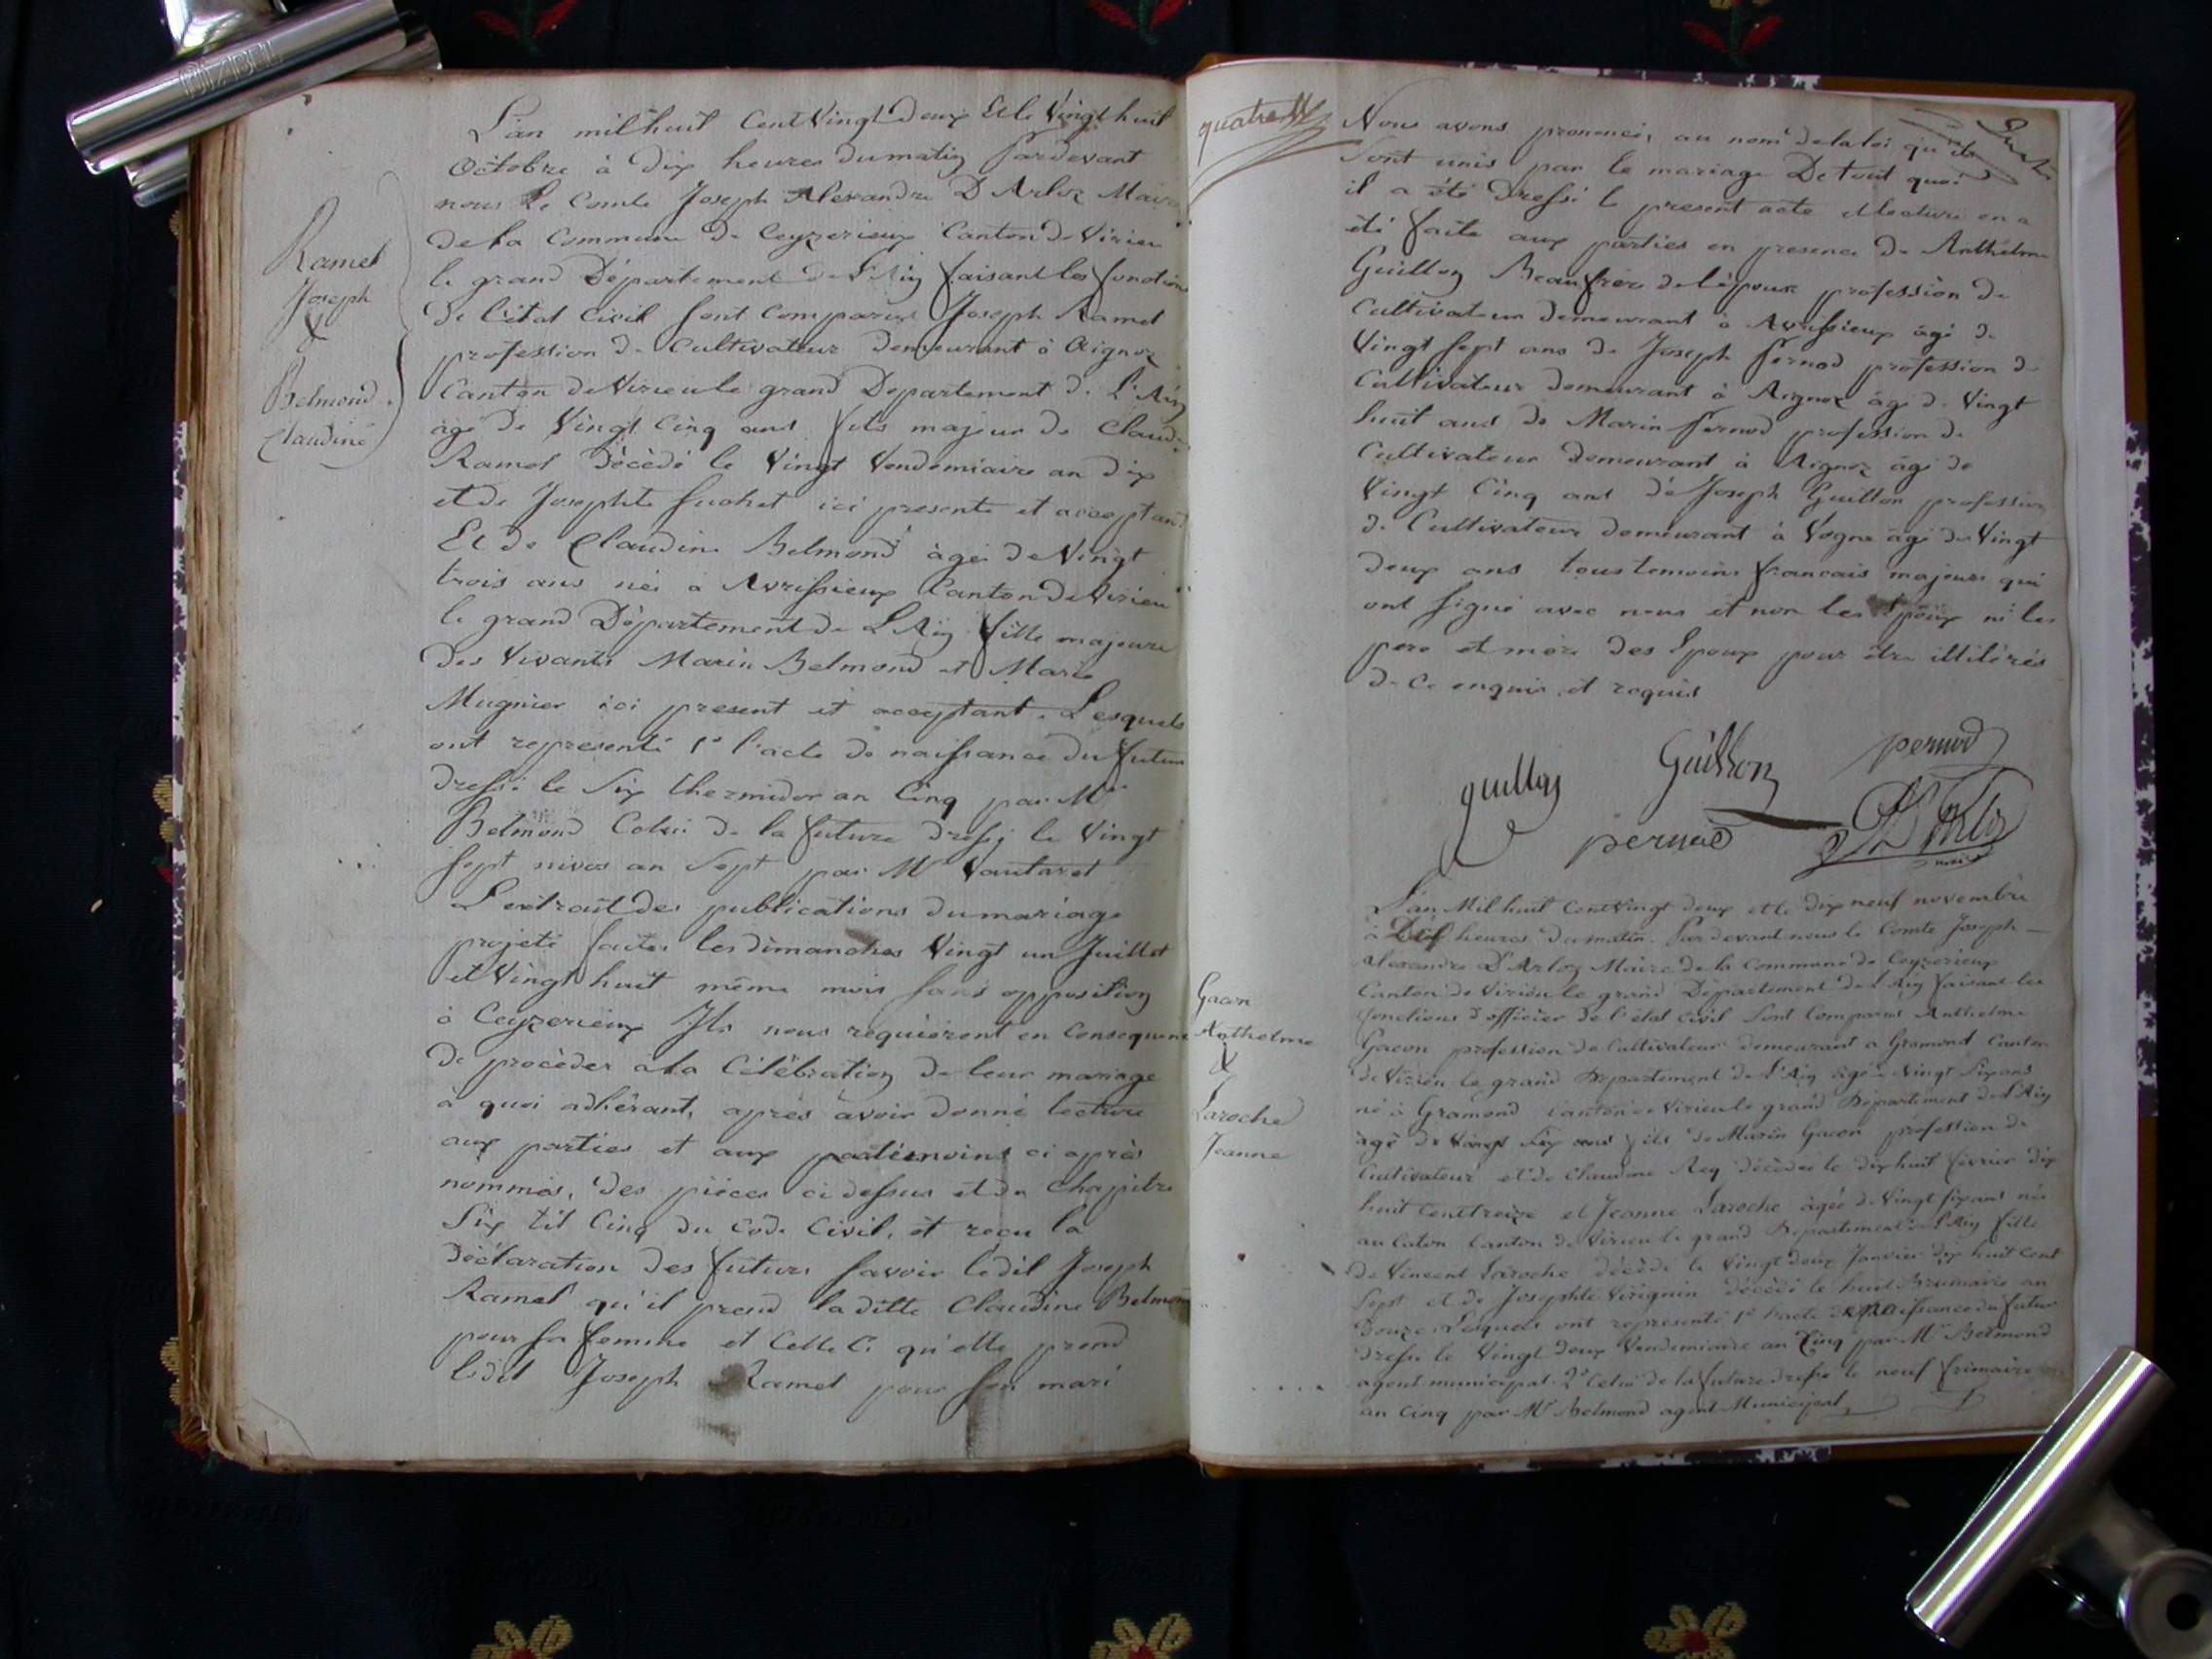 Ramel
Joseph
&
Belmond
Claudine
L'an mil huit Cent Vingt Deux Et le Vingt huit
Octobre à Dix heures du matin Pardevant
nous Le Comte Joseph Alexandre D'Arloz Maire
de la Commune de Ceyzerieux Canton de Virieu
le grand Département de L'Ain faisant les fonctions
de l'état Civil sont Comparus Joseph Ramel
profession de Cultivateur demeurant à Aignoz
Canton de Virieu le grand Departement de L'Ain
âgé de Vingt Cinq ans fils majeur de Claude
Ramel Décédé le Vingt Vendemiaire an dix
et de Josephte Suchet ici presente et acceptant
Et de Claudine Belmond âgée de Vingt
trois ans née à Avrissieux Canton de Virieu
le grand Département de L'Ain fille majeure
des Vivants Marin Belmond et Marie
Mugnier ici present et acceptant. Lesquels
ont representé 1º l'acte de naissance du futur
dressé le Six thermidor an Cinq par Mr
Belmond Celui de la future dressé le Vingt
sept nivos an Sept par Mr Vautaret
L'extrait des publications du mariage
projeté faites les dimanches Vingt un Juillet
et Vingt huit même mois sans opposition
à Ceyzerieux Ils nous requièrent en Consequence
de procèder a la Célébration de leur mariage
à quoi adhérant, après avoir donné lecture
aux parties et aux témoins ci après
nommés, des pièces ci dessus et du Chapitre
Six tit Cinq du Code Civil, et reçu la
Déclaration des futurs savoir ledit Joseph
Ramel qu'il prend la ditte Claudine Belmond
pour sa femme et Celle Ci qu'elle prend
ledit Joseph Ramel pour son mari
quatre
Nous avons prononcé, au nom de la loi qu'ils
sont unis par le mariage De tout quoi
il a été Dressé le present acte et lecture en a
été faite aux parties en presence de Anthelme
Guillon Beaufrère de l'époux profession de
Cultivateur demeurant à Avrissieux âgé de
Vingt sept ans de Joseph Pernod profession de
Cultivateur demeurant à Aignoz âgé de Vingt
huit ans de Marin Pernod profession de
Cultivateur demeurant à Aignoz âgé de
Vingt Cinq ans de Joseph Guillon profession
de Cultivateur demeurant à Vogne âgé de Vingt
deux ans tous temoins francais majeurs qui
ont signé avec nous et non les Epoux ni les
pere et mère des Epoux pour être illitérés
de ce enquis et requis
guillon Guillon pernod
pernod D'Arloz
Gacon
Anthelme
&
Laroche
Jeanne
L'an Mil huit Cent Vingt deux et le dix neuf novembre
à Dix heures du matin. Pardevant nous le Comte Joseph
Alexandre D'Arloz Maire de la Commune de Ceyzerieux
Canton de Virieu le grand Département de l'Ain faisant les
fonctions d'officier de l'état civil Sont Comparus Anthelme
Gacon profession de Cultivateur demeurant a Gramond Canton
de Virieu le grand Département de L'Ain âgé de Vingt Six ans
né à Gramond Canton de Virieu le grand Département de L'Ain
âgé de Vingt Six ans fils de Marin Gacon profession de
Cultivateur et de Claudine Rey décèdée le dix huit février dix
huit Cent treize et Jeanne Laroche âgée de Vingt six ans née
au Caton Canton de Virieu le grand Département de L'Ain fille
de Vincent Laroche décédé le Vingt deux Janvier dix huit Cent
Sept et de Josephte Virignin décèdé le huit Brumaire an
Douze. Lesquels ont representé 1º l'acte de naissance du futur
dressé le Vingt deux Vendemiaire an Cinq par Mr Belmond
agent municipal. 2º Celui de la future dressé le neuf frimaire
an Cinq par Mr Belmond agent Municipal